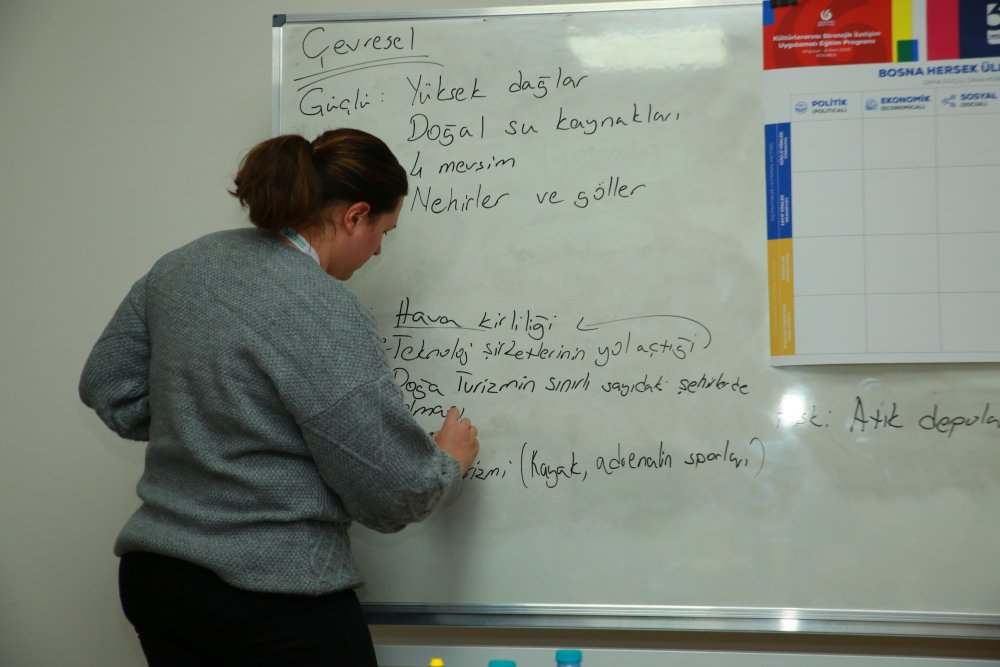 Çevresel
Güçlü: Yüksek dağlar
Doğal su kaynakları
4 mevsim
Nehirler ve göller
Hava kirliliği
Teknoloj şirketlerinin yol açtığı
Doğa Turizmin sınırlı sayıdaki şehirlerde
(Kayak, adrenalin sporları)
Atık depola
Kültürlerarası Stratejik İletişim
Uygulamalı Eğitim Programı
BOSNA HERSEK ÜL
POLİTİK
(POLITICAL)
EKONOMİK
(ECONOMICAL)
SOSYAL
(SOCIAL)